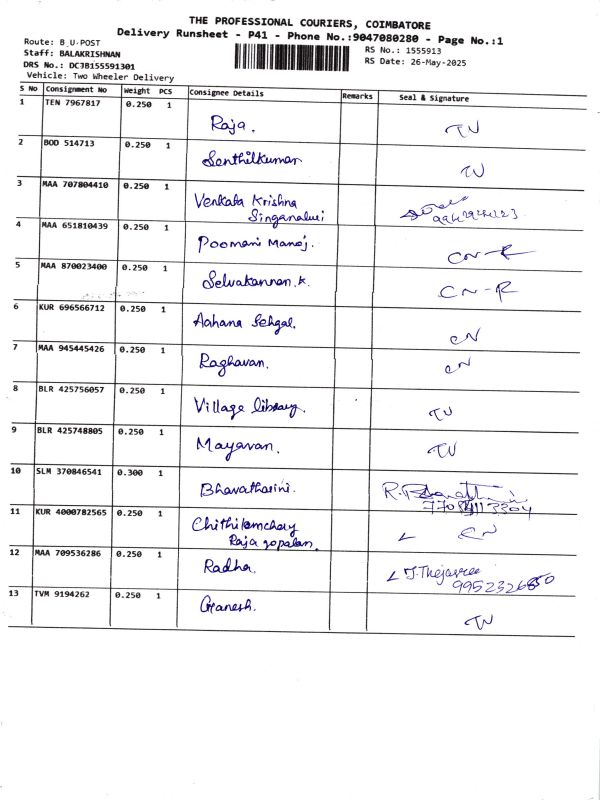 THE PROFESSIONAL COURIERS, COIMBATORE
Delivery Runsheet - P41 - Phone No.:9047080280 - Page No.:1
Route: B_U-POST
RS No.: 1555913
Staff: BALAKRISHNAN
RS Date: 26-May-2025
DRS No.: DCJB155591301
Vehicle: Two Wheeler Delivery
S No Consignment No Weight PCS Consignee Details Remarks Seal & Signature
1 TEN 7967817 0.250 1 Raja. TN
2 BOD 514713 0.250 1 Senthilkumar TN
3 MAA 707804410 0.250 1 Venkata Krishna
Singanaluri
4 MAA 651810439 0.250 1 Poomani Manoj. CN-R
5 MAA 870023400 0.250 1 Selvakannan.K. CN-R
6 KUR 696566712 0.250 1 Aahana Sehgal. CN
7 MAA 945445426 0.250 1 Raghavan. CN
8 BLR 425756057 0.250 1 Village library. TN
9 BLR 425748805 0.250 1 Mayavan. TN
10 SLM 370846541 0.300 1 Bhavatharini.
11 KUR 4000782565 0.250 1 Chithilamchery CN
Raja gopalan.
12 MAA 709536286 0.250 1 Radha. J.Thejasree
13 TVM 9194262 0.250 1 Ganesh. TN